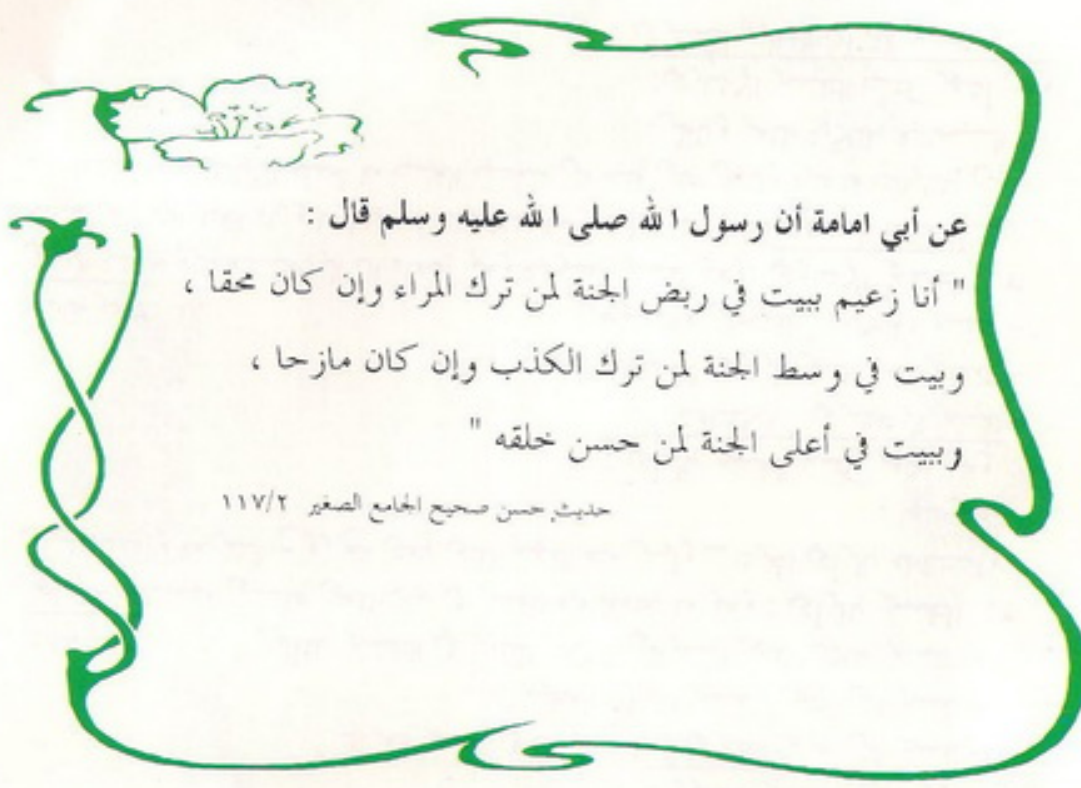 عن أبي امامة أن رسول الله صلى الله عليه وسلم قال :
" أنا زعيم ببيت في ربض الجنة لمن ترك المراء وإن كان محقا ،
وبيت في وسط الجنة لمن ترك الكذب وإن كان مازحا ،
وببيت في أعلى الجنة لمن حسن خلقه "
حديث حسن صحيح الجامع الصغير ١١٧/٢